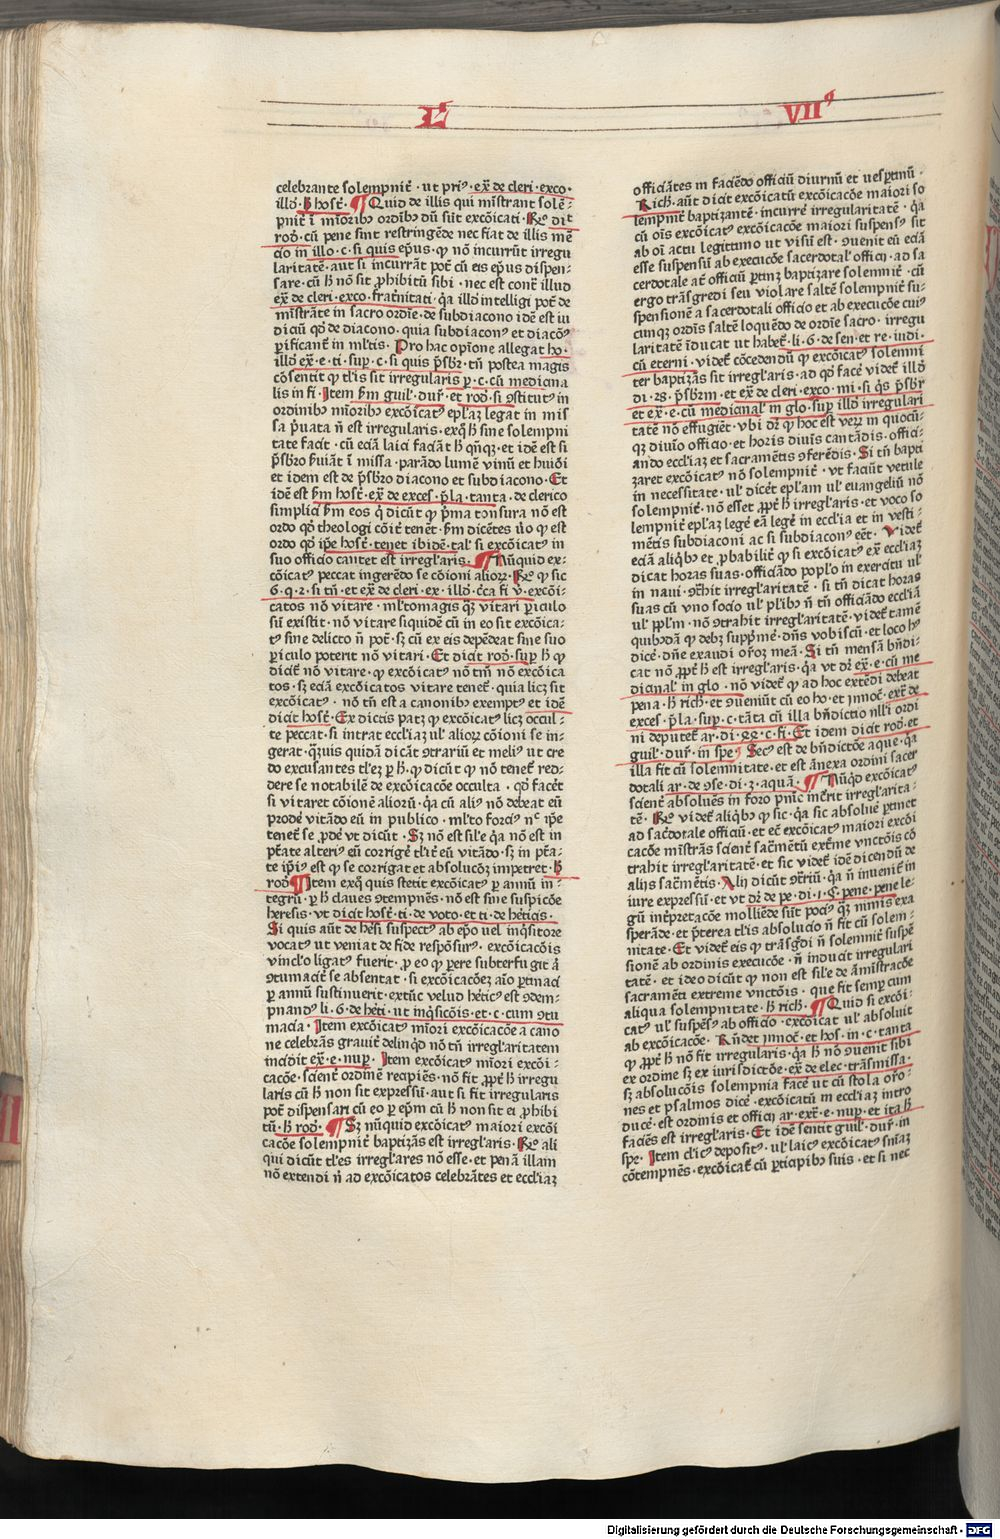 L VIIꝰ
celebrante solempnit̄ · ut priꝰ · ex̄ de cleri · exco ·
illo᷒ · ħ host̄ · ¶ Quid de illis qui mīstrant solē-
pnit̄ ī mīoribꝰ ordībꝰ dū sūt excōicati · Rͦ dit
rod̄ · cū pene sint restringēde nec fiat de illis mē
cio in illo · c · si quis ep̄us · ꝙ nō incurrūt irregu
laritatē · aut si incurrāt pot̄ cū eis ep̄us dispen-
sare · cū ħ nō sit ꝓhibitū sibi · nec est conͣ illud
ex̄ de cleri · exco · frat̄nitati · q̄a illd̄ intelligi pot̄ de
mīstrāte in sacro ordīe · de subdiacono idē est iu
diciū qd̄ de diacono · quia subdiaconꝰ et diacōꝰ
ꝑificant̄ in ml̄tis · Pro hac opīone allegat ho ·
illd̄ ex̄ · e · ti · sup̄ · c · si quis p̄sbr̄ · tn̄ postea magis
cōsentit ꝙ tl̄is sit irregularis ꝑ · c · cū medicina
lis in fi · Item s̄m guil · dur̄ · et rod̄ · si ꝯstitutꝰ in
ordinibꝰ mīoribꝰ excōicatꝰ epl̄az legat in mis
sa p̄uata n̄ est irregularis · exq̄ ħ sine solempni
tate facit · cū eciā laici faciāt ħ qn̄qꝫ · et idē est si
p̄sbro s̄uiāt ī missa · parādo lumē vinū et huiōi
et idem est de p̄sbro diacono et subdiacono · Et
idē est s̄m host̄ · ex̄ de exces · p̄la · tanta · de clerico
simplici s̄m eos q̄ dicūt ꝙ p̄ma tonsura nō est
ordo qd̄ theologi cōit̄ tenēt · s̄m dicētes ūo ꝙ est
ordo qd̄ ip̄e host̄ · tenet ibidē · tal̄ si excōicatꝰ in
suo officio cantet est irregl̄aris · ¶ Nūquid ex-
cōicatꝰ peccat ingerēdo se cōioni alioꝝ · Rͦ ꝙ sic
6 · q · 2 · si tn̄ · et ex̄ de cleri · ex · illd̄ · c̄ca fi v̄ · excōi-
catos nō vitare · ml̄tomagis qꝫ vitari ꝑiculo
sū existit · nō vitare siquidē cū in eo sit excōica-
tꝰ sine delicto n̄ pot̄ · sꝫ cū ex eis depēdeat sine suo
ꝑiculo poterit nō vitari · Et dicit rod̄ · sup̄ ħ ꝙ
dicit̄ nō vitare · ꝙ excōicatꝰ nō tm̄ nō excōica
tos · sꝫ eciā excōicatos vitare tenet̄ · quia licꝫ sit
excōicatꝰ · nō tn̄ est a canonibꝰ exemptꝰ · et idē
dicit host̄ · Ex dictis patꝫ ꝙ excōicatꝰ licꝫ occul-
te peccat · si intrat eccl̄iaꝫ ul̄ alioꝝ cōioni se in-
gerat · qᷓuis quidā dicāt ꝯtrariū et meliꝰ ut cre
do excusantes tl̄eꝫ ꝑ ħ · ꝙ dicūt ꝙ nō tenet̄ red-
dere se notabilē de excōicacōe occulta · qd̄ facēt
si vitaret cōionē aliorū · q̄a cū aliꝰ nō debeat eū
prodē vitādo eū in publico · ml̄to forciꝰ nͨ ip̄e
tenet̄ se ꝓdē vt dicūt · Sꝫ nō est sil̄e q̄a nō est in
pt̄ate alteriꝰ eū corrigē tl̄it̄ eū vitādo · sꝫ in pt̄a-
te ip̄iꝰ est ꝙ se corrigat et absolucōꝫ impetret · ħ
rod̄ ¶ Item exq̄ quis stetit excōicatꝰ ꝑ annū in-
tegrū · ꝑ ħ claues ꝯtempnēs · nō est sine suspicōe
heresis · vt dicit host̄ · ti · de voto · et ti · de heticis ·
Si quis aūt de hēsi suspectꝰ ab ep̄o uel inq̄sitore
vocatꝰ ut veniat de fide respōsurꝰ · excōicacōis
vincl̄o ligatꝰ fuerit · ꝓ eo ꝙ ꝑere subterfugit a
ꝯtumacit̄ se absentat · si excōicacōeꝫ aīo ꝑtinaci
ꝑ annū sustinuerit · extūc velud hēticꝰ est ꝯdem-
pnandꝰ li · 6 · de hēti · ut inq̄sicōis · et · c · cum ꝯtu
macia · Item excōicatꝰ mīori excōicacōe a cano
ne celebrās grauit̄ delinq̄d nō tn̄ irregl̄aritatem
incidit ex̄ · e · nup̄ · Item excōicatꝰ mīori excōi-
cacōe · scient̄ ordinē recipiēs · nō fit ꝓpt̄ ħ irregu
laris cū ħ non sit expressū · aut si fit irregularis
pot̄ dispensari cū eo ꝑ ep̄m cū ħ non sit ei ꝓhibi
tū · ħ rod̄ · ¶ Sꝫ nūquid excōicatꝰ maiori excōi
cacōe solempnit̄ baptizās est irregl̄aris · Rͦ ali
qui dicūt tl̄es irregl̄ares nō esse · et penā illam
nō extendi n̄ ad excōicatos celebrātes et eccl̄iaꝫ
officiātes in faciēdo officiū diurnū et uesꝑtinū ·
Rich · aūt dicit excōicatū excōicacōe maiori so
lempnit̄ baptizantē · incurrē irregularitatē · q̄a
cū oīs excōicatꝰ excōicacōe maiori suspensꝰ sit
ab oī actu legittimo ut visū est · ꝯuenit eū eciā
esse suspensū ab execucōe sacerdotal̄ officij · ad sa
cerdotale at̄ officiū ꝑtinꝫ baptizare solemnit̄ · cū
ergo trāsgredi seu violare saltē solempnit̄ su-
spensionē a sacerdotali officio et ab execucōe cuiꝰ
cunqꝫ ordīs saltē loquēdo de ordīe sacro · irregu
laritatē īducat ut habet̄ · li · 6 · de sen · et re · iudi ·
cū eterni · videt̄ cōcedendū ꝙ excōicatꝰ solemni
ter baptizās sit irregl̄aris · ad qd̄ facē videt̄ illd̄
di · 28 · p̄sbr̄m · et ex̄ de cleri · exco · mi · si q̄s p̄sbr̄
et ex̄ · e · cū medicinal̄ in glo · sup̄ illd̄ irregulari
tatē nō effugiēt · vbi dr̄ ꝙ hoc est verū in quocū-
qꝫ diuīo officio · et horis diuīs cantādis · offici-
ando eccl̄iaꝫ et sacramētis ꝯferēdis · Si tn̄ bapti
zaret excōicatꝰ nō solempnit̄ · vt faciūt vetule
in necessitate · ul̄ dicēt epl̄am ul̄ euangeliū nō
solempnit̄ · nō esset ꝓpt̄ ħ irregl̄aris · et voco so
lempnit̄ epl̄aꝫ legē eā legē in eccl̄ia et in vesti-
mētis subdiaconi ac si subdiaconꝰ eēt · Videt̄
eciā aliq̄bꝰ et ꝓbabilit̄ ꝙ si excōicatꝰ ex̄ eccl̄iaꝫ
dicat horas suas · officiādo popl̄o in exercitu ul̄
in naui · ꝯt̄hit irregl̄aritatē · si tn̄ dicat horas
suas cū vno socio ul̄ pl̄ibꝰ n̄ tn̄ officiādo eccl̄iā
ul̄ ppl̄m · nō ꝯtrahit irregl̄aritatē · videt̄ tamē
quibꝰdā ꝙ debꝫ supp̄mē · dn̄s vobiscū · et loco hꝰ
dicē · dn̄e exaudi orōꝫ meā · Si tn̄ mensā bn̄di-
cat nō ꝓpt̄ ħ est irregl̄aris · q̄a vt dr̄ ex̄ · e · cū me
dicinal̄ in glo · nō videt̄ ꝙ ad hoc extēdi debeat
pena · ħ rich · et ꝯueniūt cū eo ho · et jnnoc̄ · ex̄ de
exces · p̄la · sup̄ · c · tāta cū illa bn̄dictio nll̄i ordi
ni deputet̄ ar · di · 22 · c · fi · Et idem dicit rod̄ · et
guil̄ · dur̄ · in spe · Secꝰ est de bn̄dictōe aque · q̄a
illa fit cū solemnitate · et est ānexa ordini sacer
dotali ar · de ꝯse · di · 3 · aquā · ¶ Nūqd̄ excōicatꝰ
scient̄ absoluēs in foro pn̄ic̄ incr̄rit irregl̄arita-
tē · Rͦ videt̄ aliq̄bꝰ ꝙ sic · q̄a sic absoluē ꝑtinet
ad sac̄dotale officiū · et eciā excōicatꝰ maiori excōi
cacōe mīstrās scient̄ sac̄mētū ext̄me vnctōis cō
trahit irregl̄aritatē · et sic videt̄ idē dicendū de
alijs sac̄mētis · Alij dicūt ꝯt̄riū · q̄a n̄ inuenit̄ in
iure expressū · et vt dr̄ de pe · di · 1 · C̨ pene · pene le-
gū int̄pretacōe molliēde sūt pociꝰ qꝫ nimis exa
sperāde · et p̄terea tl̄is absolucio n̄ fit cū solem-
nitate · Et videt̄ eis ꝙ trāsgr̄di n̄ solemnit̄ suspē
sionē ab ordinis execucōe · n̄ inducit irregulari
tatē · et ideo dicūt ꝙ non est sil̄e de āmīstracōe
sacramēti extreme vnctōis · que fit semꝑ cum
aliqua solempnitate · ħ rich · ¶ Quid si excōi-
catꝰ ul̄ suspēsꝰ ab officio · excōicat ul̄ absoluit
ab excōicacōe · Rn̄det jnnoc̄ · et hos · in · c · tanta
ꝙ ꝓpt̄ ħ nō fit irregularis · q̄a ħ nō ꝯuenit sibi
ex ordine sꝫ ex iurisdictōe · ex̄ de elec · trāsmissa ·
sꝫ absolucōis solempnia facē ut cū stola oro̅-
nes et psalmos dicē · excōicatū in eccl̄iaꝫ intro
ducē · est ordinis et officij ar · ex̄ · e · nup̄ · et ita ħ
faciēs est irregl̄aris · Et idē sentit guil̄ · dur̄ · in
spe · Item cl̄icꝰ depositꝰ · ul̄ laicꝰ excōicatꝰ sn̄iaꝫ
cōtempnēs · excōicat̄ cū ꝑticipibꝰ suis · et si nec
Digitalisierung gefördert durch die Deutsche Forschungsgemeinschaft - DFG